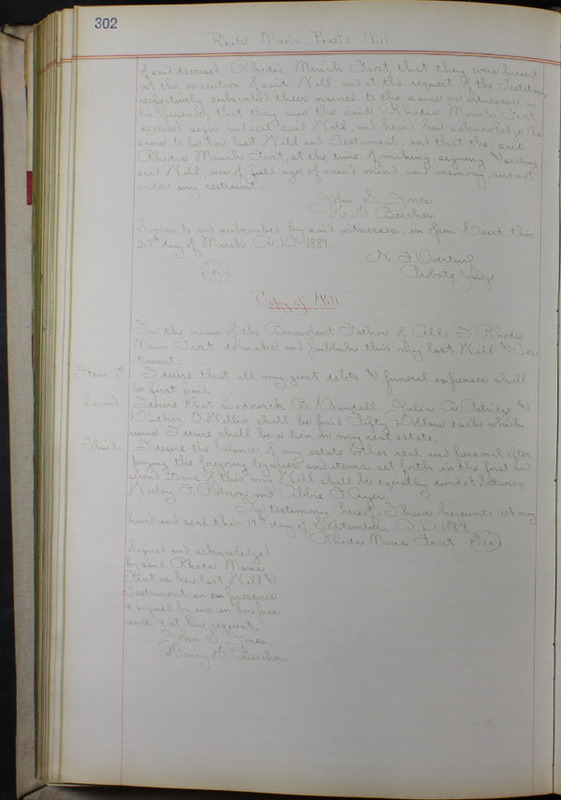 302
Maria Frost's Will
of said deceased, Rhoda Maria Frost, that they were present
at the execution of said Will, and at the request of the Testatrix,
respectively subscribed their names to the same as witnesses in
her presence, that they saw the said Rhoda Maria Frost
deceased sign and seal said Will, and hear her acknowledge the
same to be her last Will and Testament, and that the said
Rhoda Maria Frost, at the time of making, signing & sealing
said Will, was of full age of sound mind and memory, and not
under any restraint.
John S. Jones
H. H. Beecher
Sworn to and subscribed by said witnesses, in open Court, this
27th day of March A.D. 1889.
N. F. Overturf
Seal Probate Judge
Copy of Will.
In the name of the Benevolent Father of All: I Rhoda
Maria Frost do make and publish this my last Will & Tes
tament:
Item 1st I desire that all my just debts & funeral expenses shall
be first paid.
Second. I desire that R. Crandall, Julia A. &
O. Willis shall be paid Fifty Dollars each which
sums I desire shall be a lien on my real estate.
Third. I desire the balance of my estate both real and personal after
paying the foregoing legacies and items set forth in the first and
second items of this my Will shall be equally divided between
F. and F.
In testimony hereof, I have hereunto set my
hand and seal this 11th day of September A.D. 1884
Rhoda Maria Frost Seal
Signed and acknowledged
by said Rhoda Maria
Frost as her last Will &
Testament in our presence
& signed by us in her pres
ence & at her request.
John S. Jones.
Henry H. Beecher.